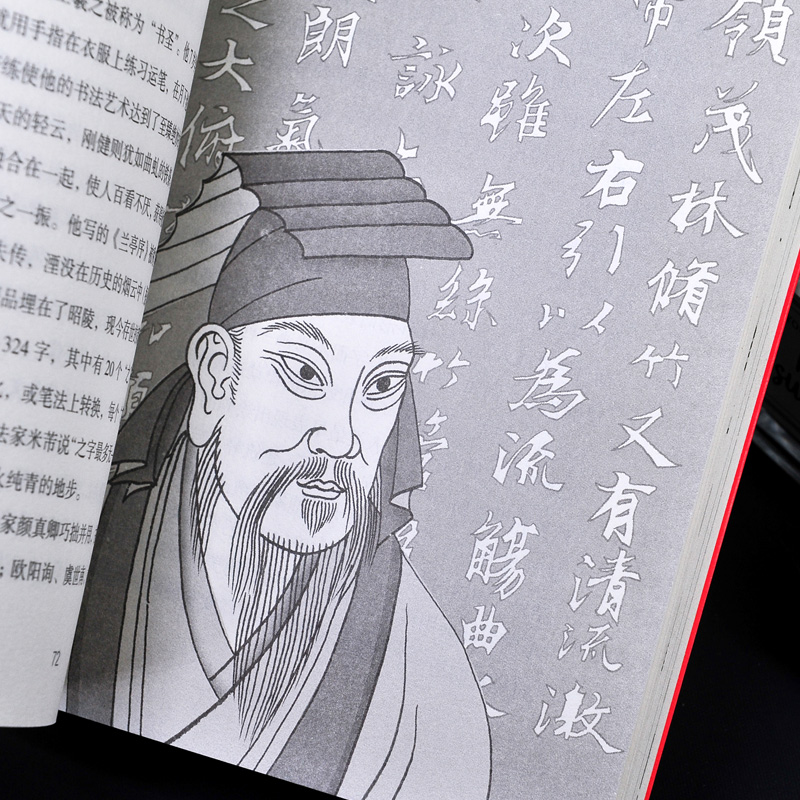 羲之被称为“书圣”。他
就用手指在衣服上练习运笔,在
练使他的书法艺术达到了至臻
天的轻云,刚健则犹如曲虬的
合在一起,使人百看不厌,
之一振。他写的《兰亭序》
失传,湮没在历史的烟云中
品埋在了昭陵,现今存
324字,其中有20个“
,或笔法上转换,每个
法家米芾说“之字最多
火纯青的地步。
家颜真卿巧拙并用
;欧阳询、虞世南
72
领茂林脩竹又有清流激
带左右引以为流觴曲
次雖無絲竹管
詠
朗氣
之大俯